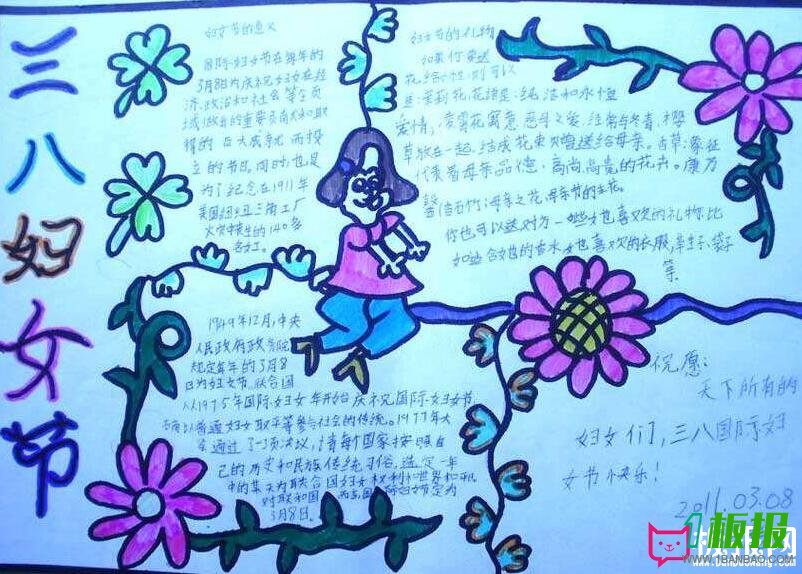 三八妇女节
妇女节的意义
国际妇女节在每年的
3月8日为庆祝妇女在经
济、政治和社会等各领
域做出的重要贡献和取
得的巨大成就而设
立的节日。同时,也是
为了纪念在1911年
美国纽约三角工厂
火灾中丧生的140多
名女工。
妇女节的礼物
如果你要送
花给女性,则可以
是:茉莉花,花语是:纯洁和永恒
爱情,
草放在一起,结成花束赠送给母亲。
代表着母亲品
馨(香石竹):母亲之花,母亲节的主花。
你也可以送对方一些她喜欢的礼物,比
如适合她的香水,她喜欢的衣服,鞋子,袋子
等
1949年12月,中央
人民政府政务院
规定每年的3月8
日为妇女节。联合国
从1975年国际妇女年开始庆祝国际妇女节,
确认普通妇女取平等参与社会的传统。1977年大
会通过了一项决议,请每个国家按照自
己的历史和民族传统习俗,选定一年
中的某天为联合国妇女权利和世界和平
3月8日。
祝愿:
天下所有的
妇女们,三八国际妇
女节快乐!
2011.03.08
1板报
WWW.1BANBAO.COM